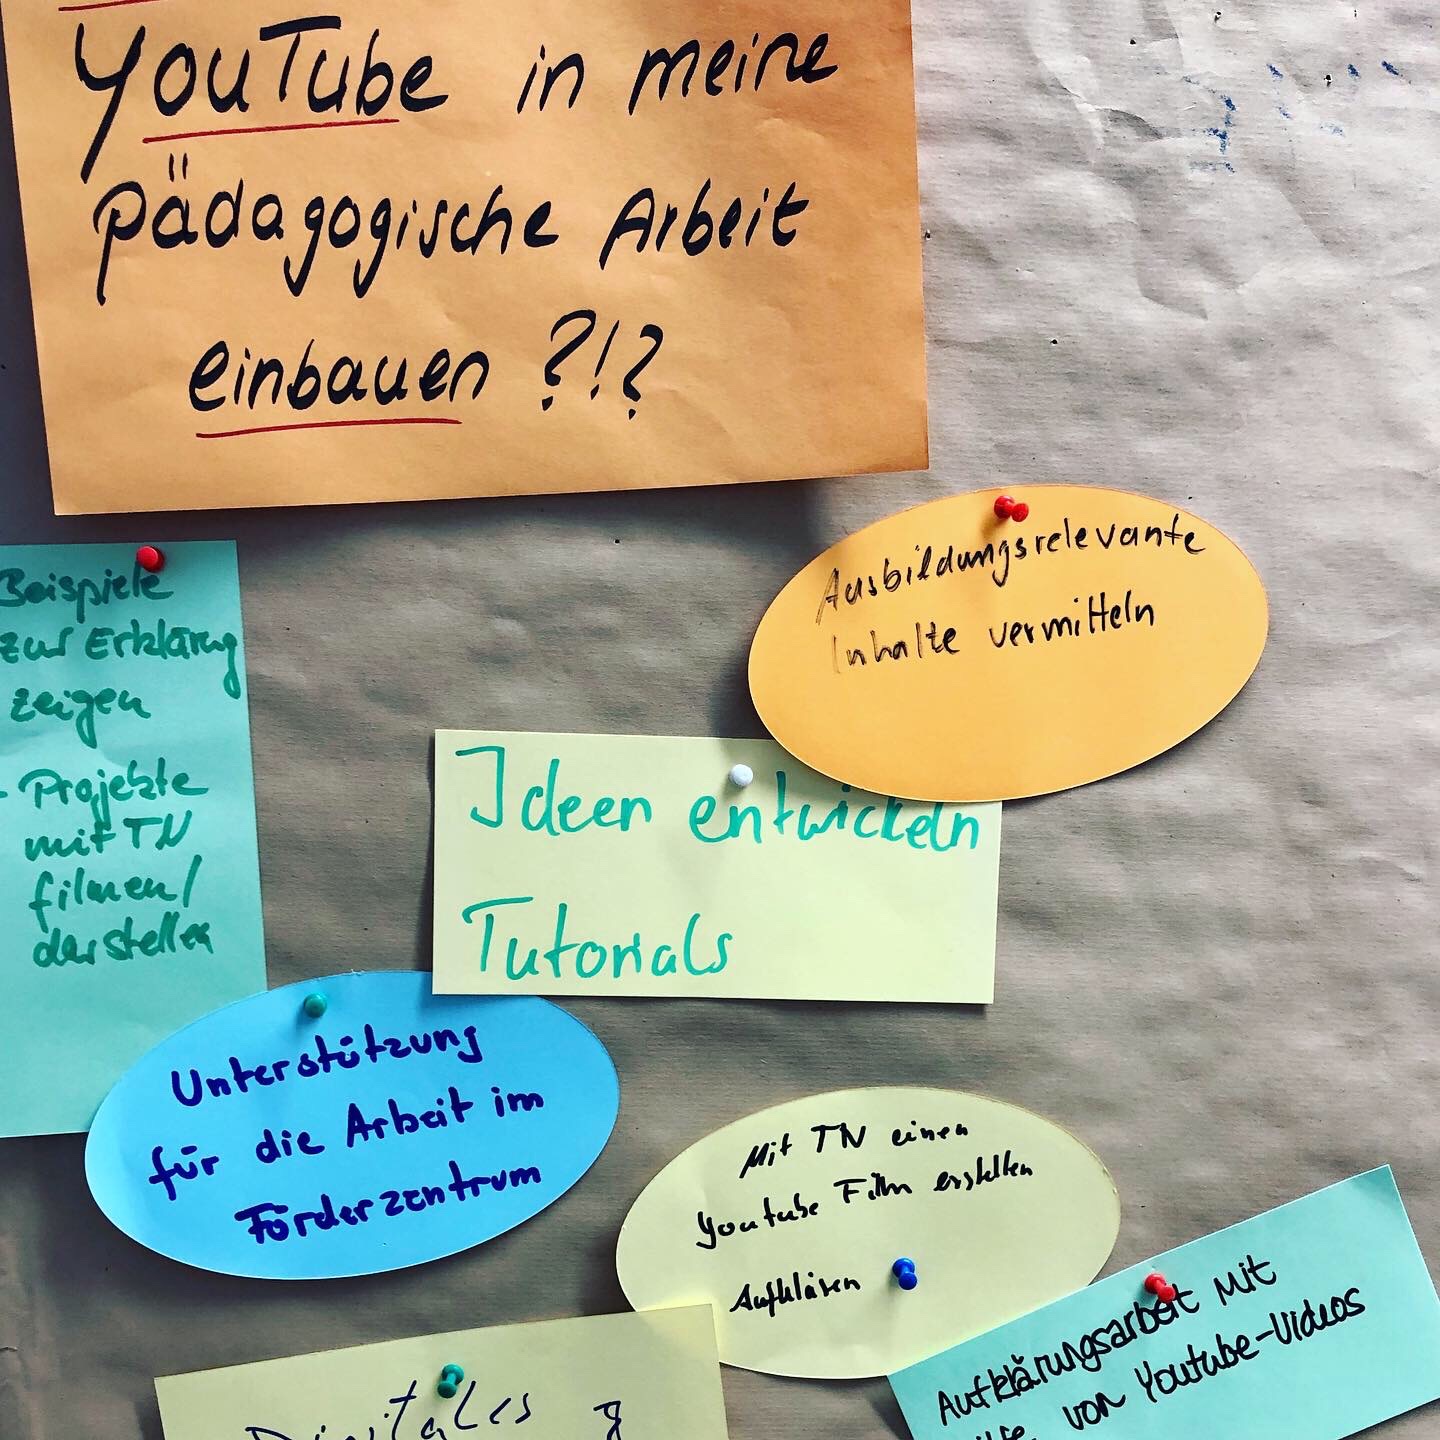 YouTube in meine
pädagogische Arbeit
einbauen ?!?
Ausbildungsrelevante
Inhalte vermitteln
Beispiele
zur Erklärung
zeigen
- Projekte
mit TN
filmen/
darstellen
Ideen entwickeln
Tutorials
Unterstützung
für die Arbeit im
Förderzentrum
Mit TN einen
Youtube Film erstellen
Aufklären
Aufklärungsarbeit Mit
von Youtube-Videos
Digitales